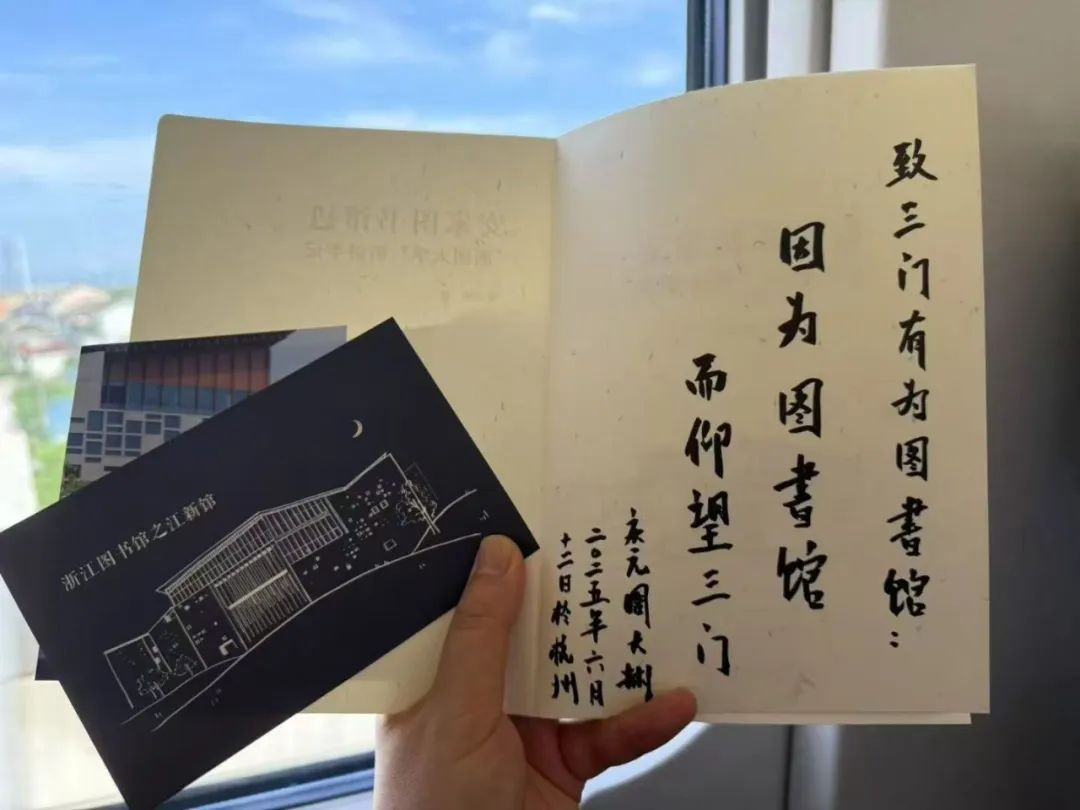 致三门有为图書馆：
因为图書馆
而仰望三门
二〇二五年六月
十二日於杭州
浙江图书馆之江新馆